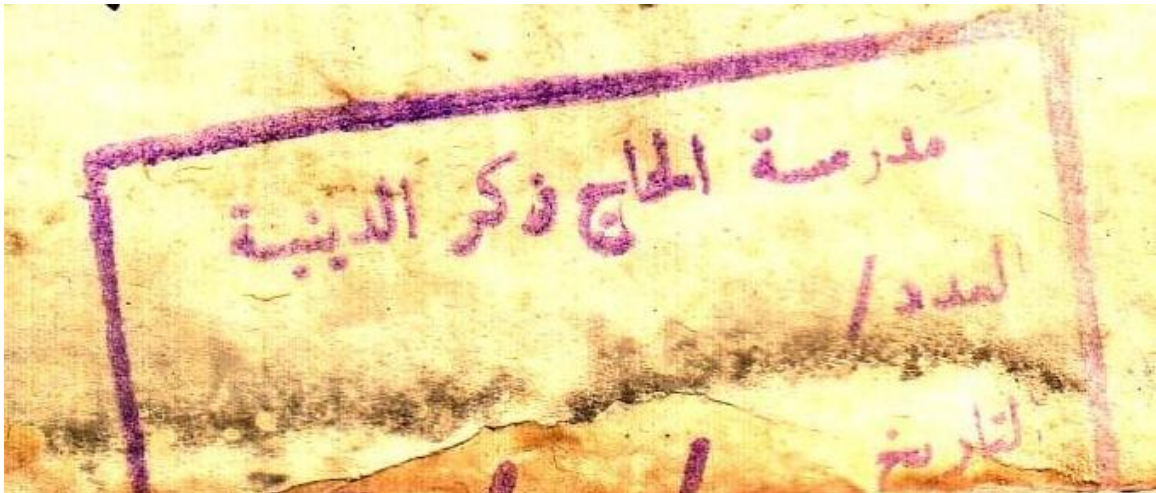 مدرسة الحاج ذكر الدينية
العدد /
التاريخ / /